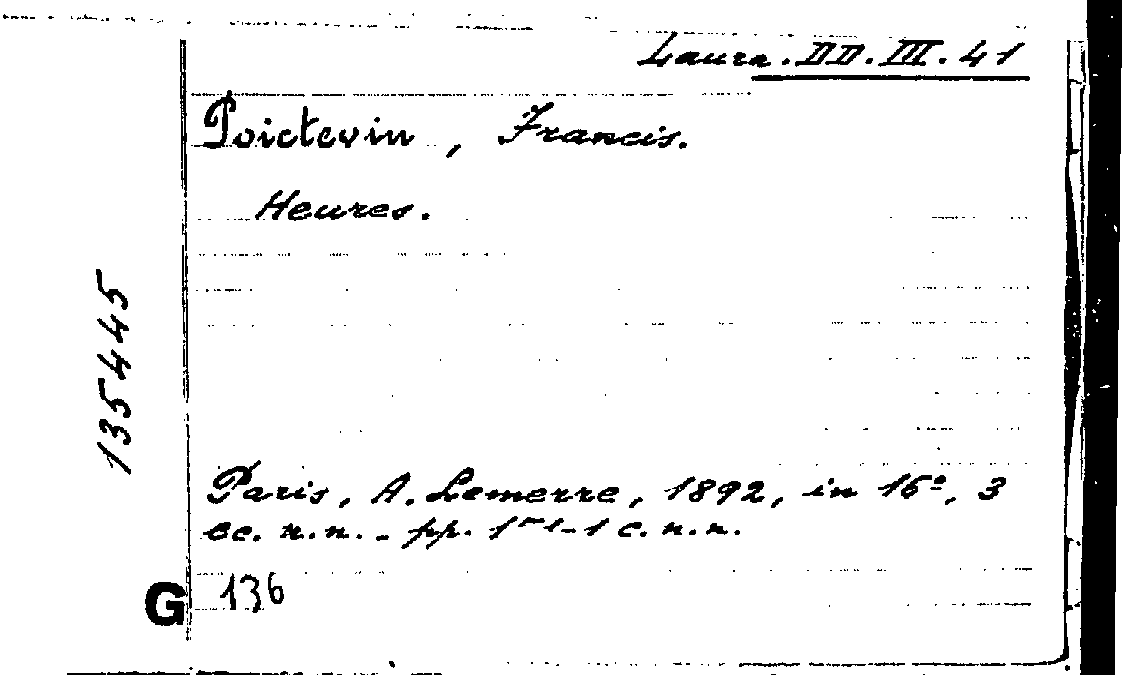 Laura. DD. III. 41
Poictevin, Francis.
Heures.
135445
Paris, A. Lemerre, 1892, in 16º, 3
cc. n.n. - pp. - 1 c. n.n.
G 136